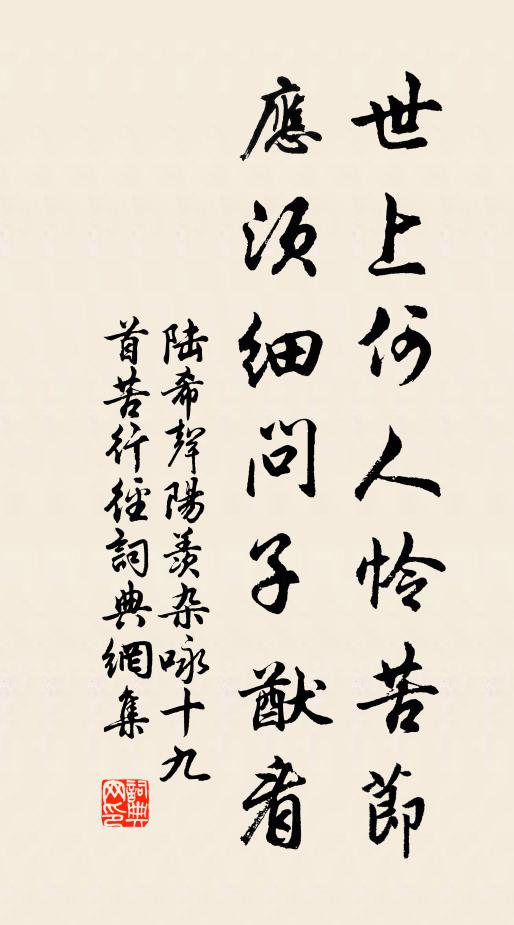 世上何人怜苦節
應須细問子猷看
陆希聲陽羡杂咏十九
首苦行徑詞典網集
詞典
网印